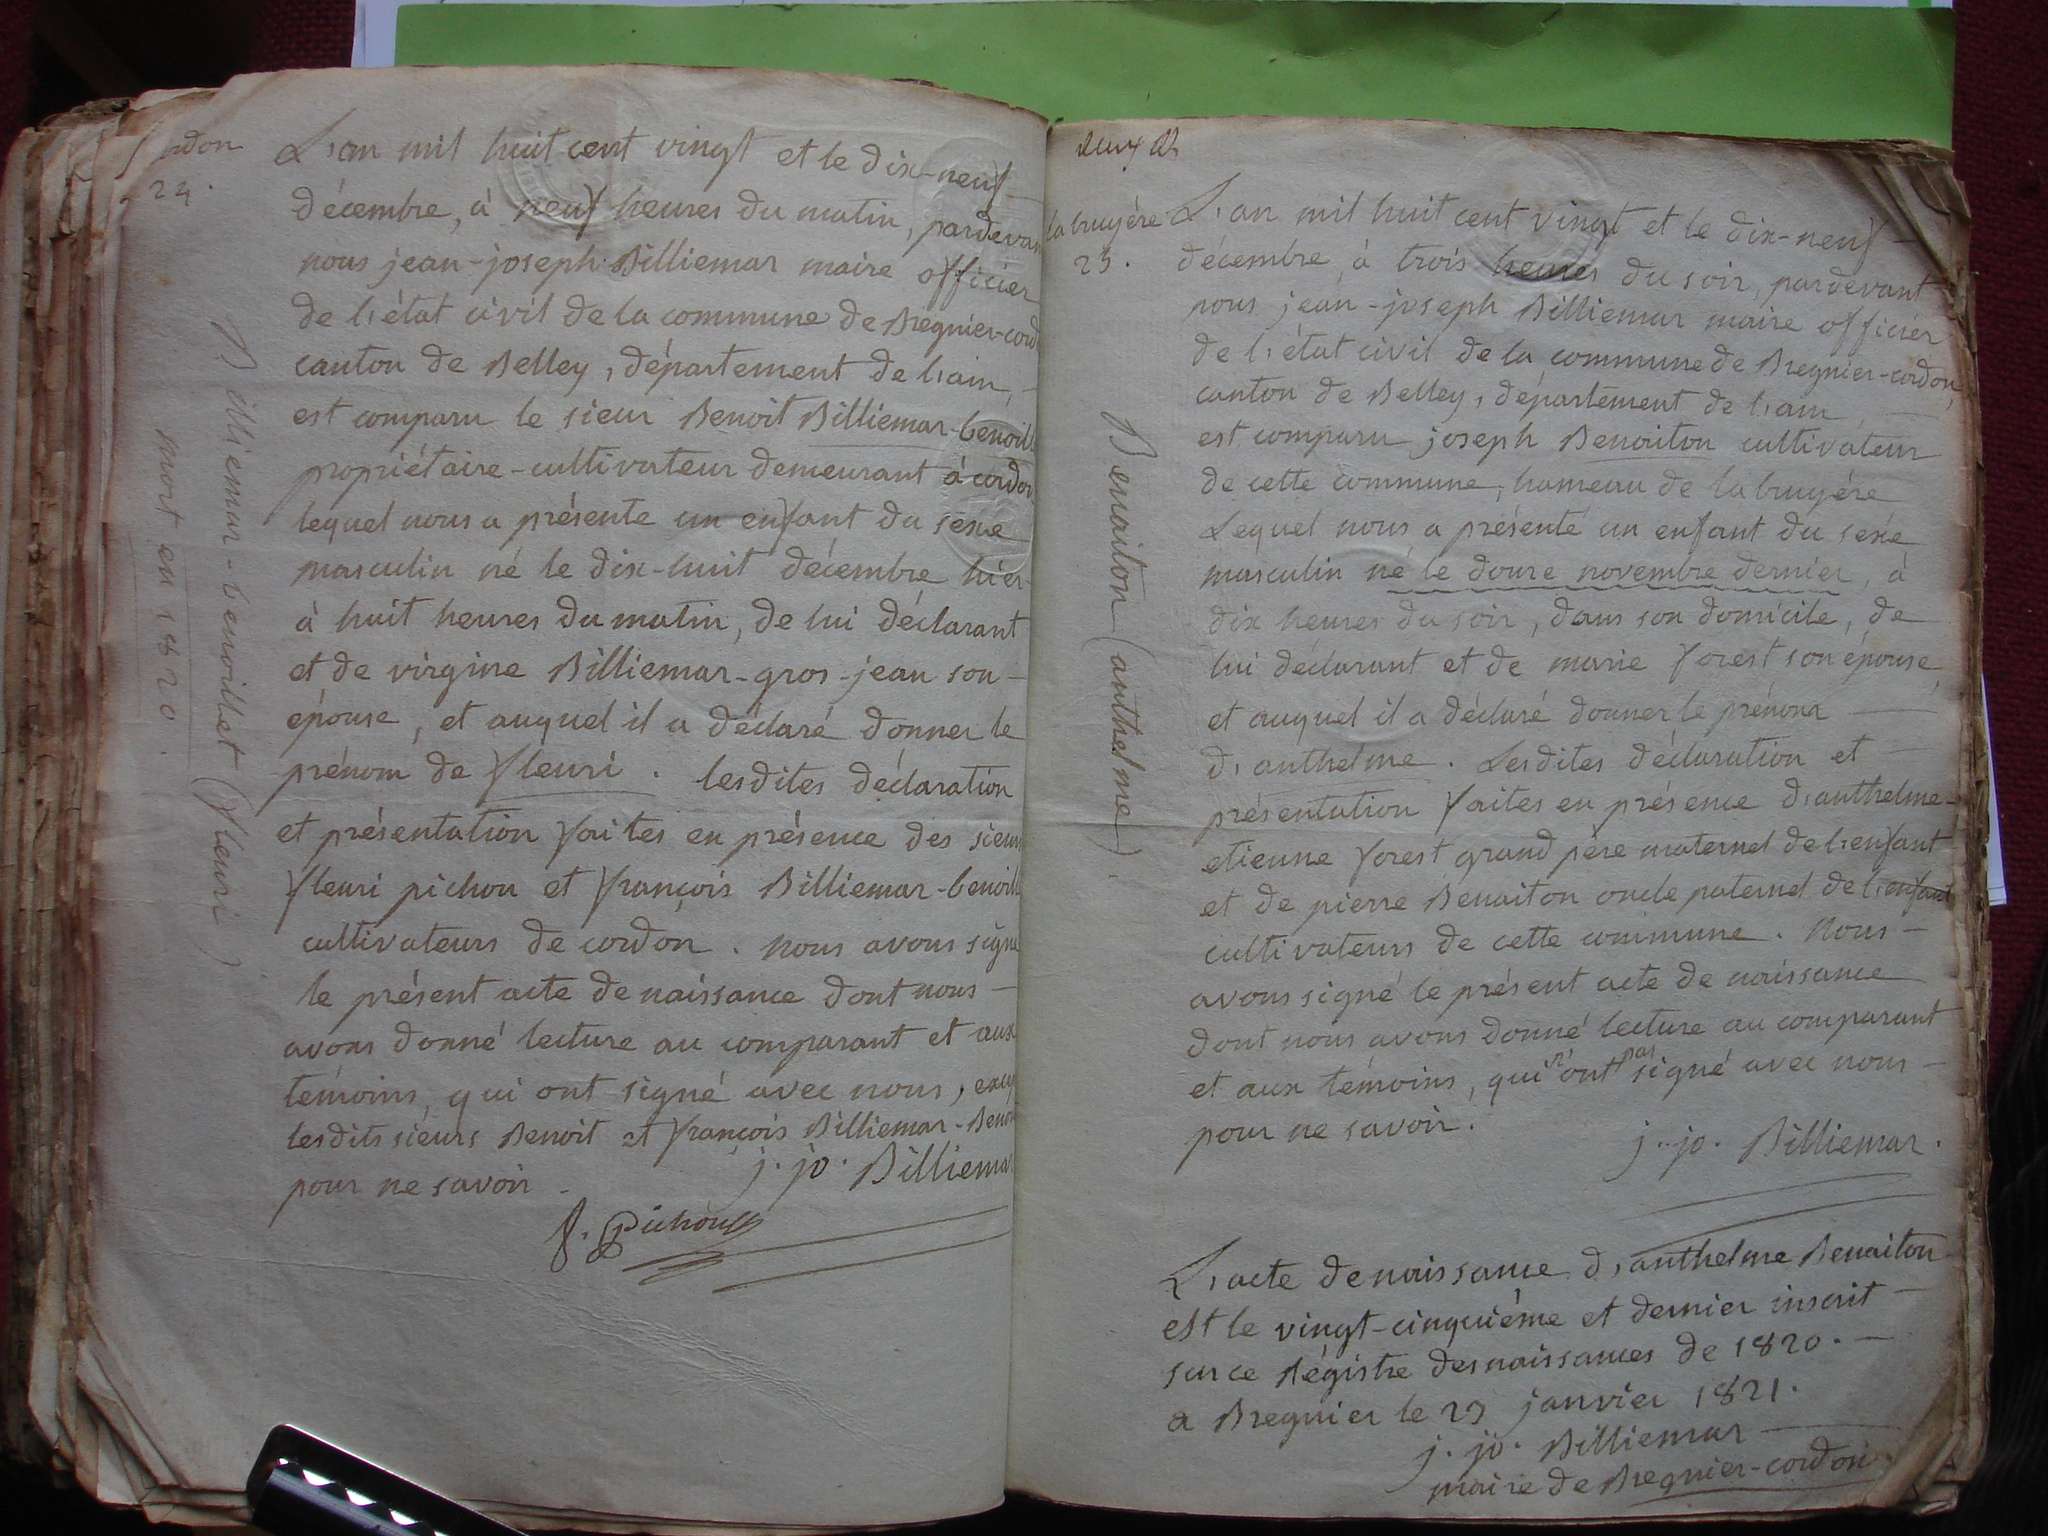 24.
Billiemar-benoillet (fleuri)
mort en 1820.
L'an mil huit cent vingt et le dix-neuf
décembre, à neuf heures du matin, pardevan
nous jean-joseph Billiemar maire officier
de l'état civil de la commune de Bregnier-cord
canton de Belley, département de l'ain,
est comparu le sieur Benoit Billiemar-benoill
propriétaire-cultivateur demeurant à cordon
lequel nous a présenté un enfant du sexe
masculin né le dix-huit décembre hier
à huit heures du matin, de lui déclarant
et de virgine Billiemar-gros-jean son
épouse, et auquel il a déclaré donner le
prénom de fleuri. lesdites déclaration
et présentation faites en présence des sieurs
fleuri pichon et françois Billiemar-benoill
cultivateurs de cordon. nous avons signé
le présent acte de naissance dont nous
avons donné lecture au comparant et aux
témoins, qui ont signé avec nous, excep
lesdits sieurs Benoit et françois Billiemar-Benoi
pour ne savoir
j. jo. Billiemar
f. pichon
deux
la bruyére
25.
Benoiton (anthelme).
L'an mil huit cent vingt et le dix-neuf
décembre, à trois heures du soir, pardevant
nous jean-joseph Billiemar maire officier
de l'état civil de la commune de Bregnier-cordon,
canton de Belley, département de l'ain,
est comparu joseph Benoiton cultivateur
de cette commune, hameau de la bruyére
Lequel nous a présenté un enfant du sexe
masculin né le douze novembre dernier, à
dix heures du soir, dans son domicile, de
lui déclarant et de marie forest son épouse,
et auquel il a déclaré donner le prénom
d'anthelme. Lesdites déclaration et
présentation faites en présence d'anthelme-
etienne forest grand père maternel de l'enfant
et de pierre Benoiton oncle paternel de l'enfant
cultivateurs de cette commune. Nous
avons signé le présent acte de naissance
dont nous avons donné lecture au comparant
et aux témoins, qui n'ont pas signé avec nous
pour ne savoir.
j. jo. Billiemar.
L'acte de naissance d'anthelme Benoiton
est le vingt-cinquiéme et dernier inscrit
sur ce Régistre des naissances de 1820.
a Bregnier le 23 janvier 1821.
j. jo. Billiemar
maire de Bregnier-cordon